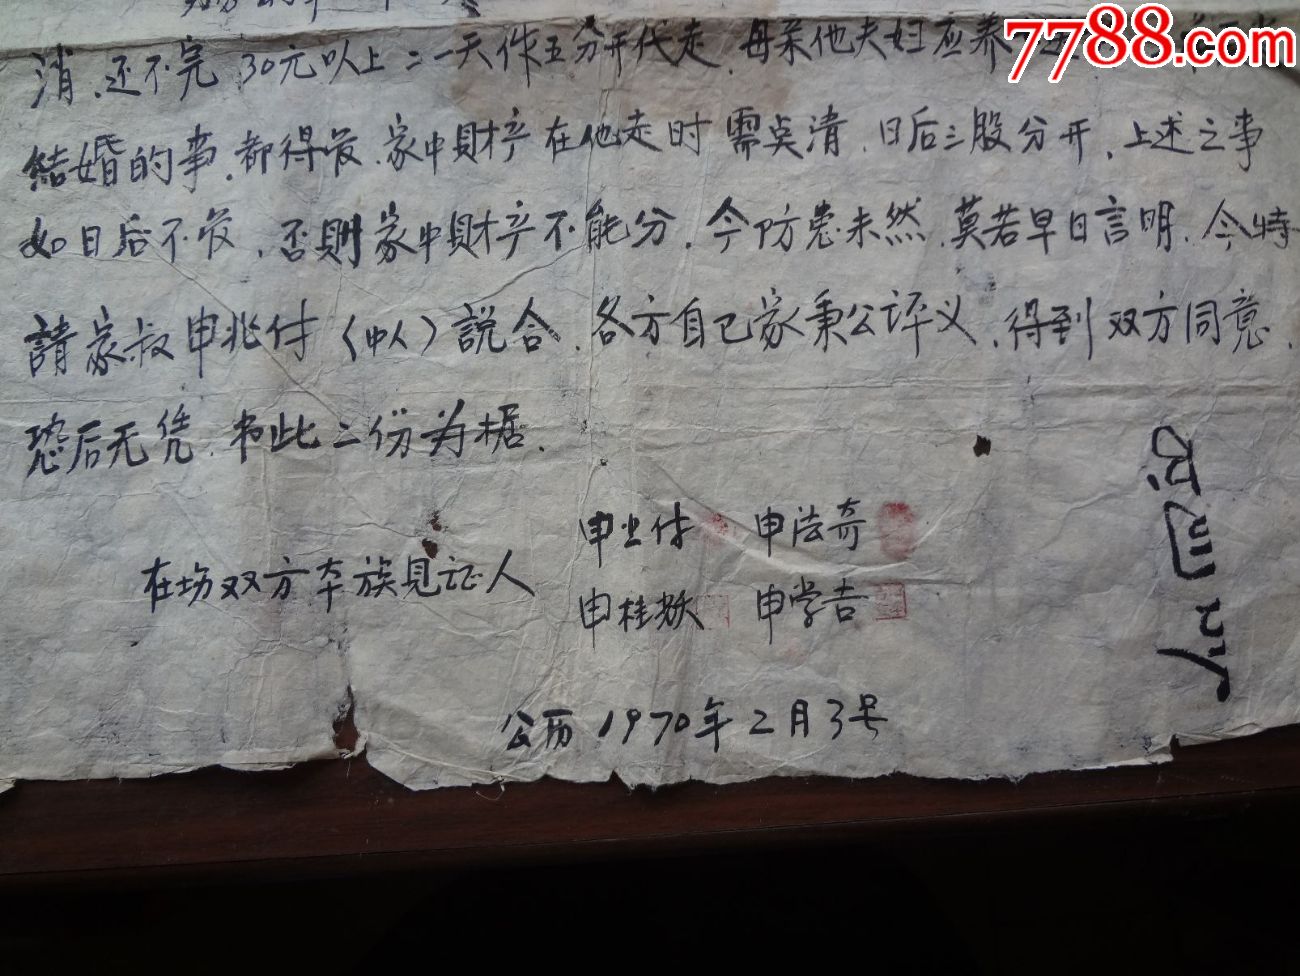 消、还不完30元以上二一天作五分开代走.母亲他夫妇应养
結婚的事.都得管.家中財产在他走时需点清.日后三股分开.上述之事
如日后不管.否則家中財产不能分.今防患未然.莫若早日言明.今特
請家叔申兆付（中人）説合.各方自己家秉公评义.得到双方同意.
恐后无凭.书此二份为据.
申兆付 申法奇
在场双方本族见证人
申桂 申学吉
公历1970年2月3号
7788.com